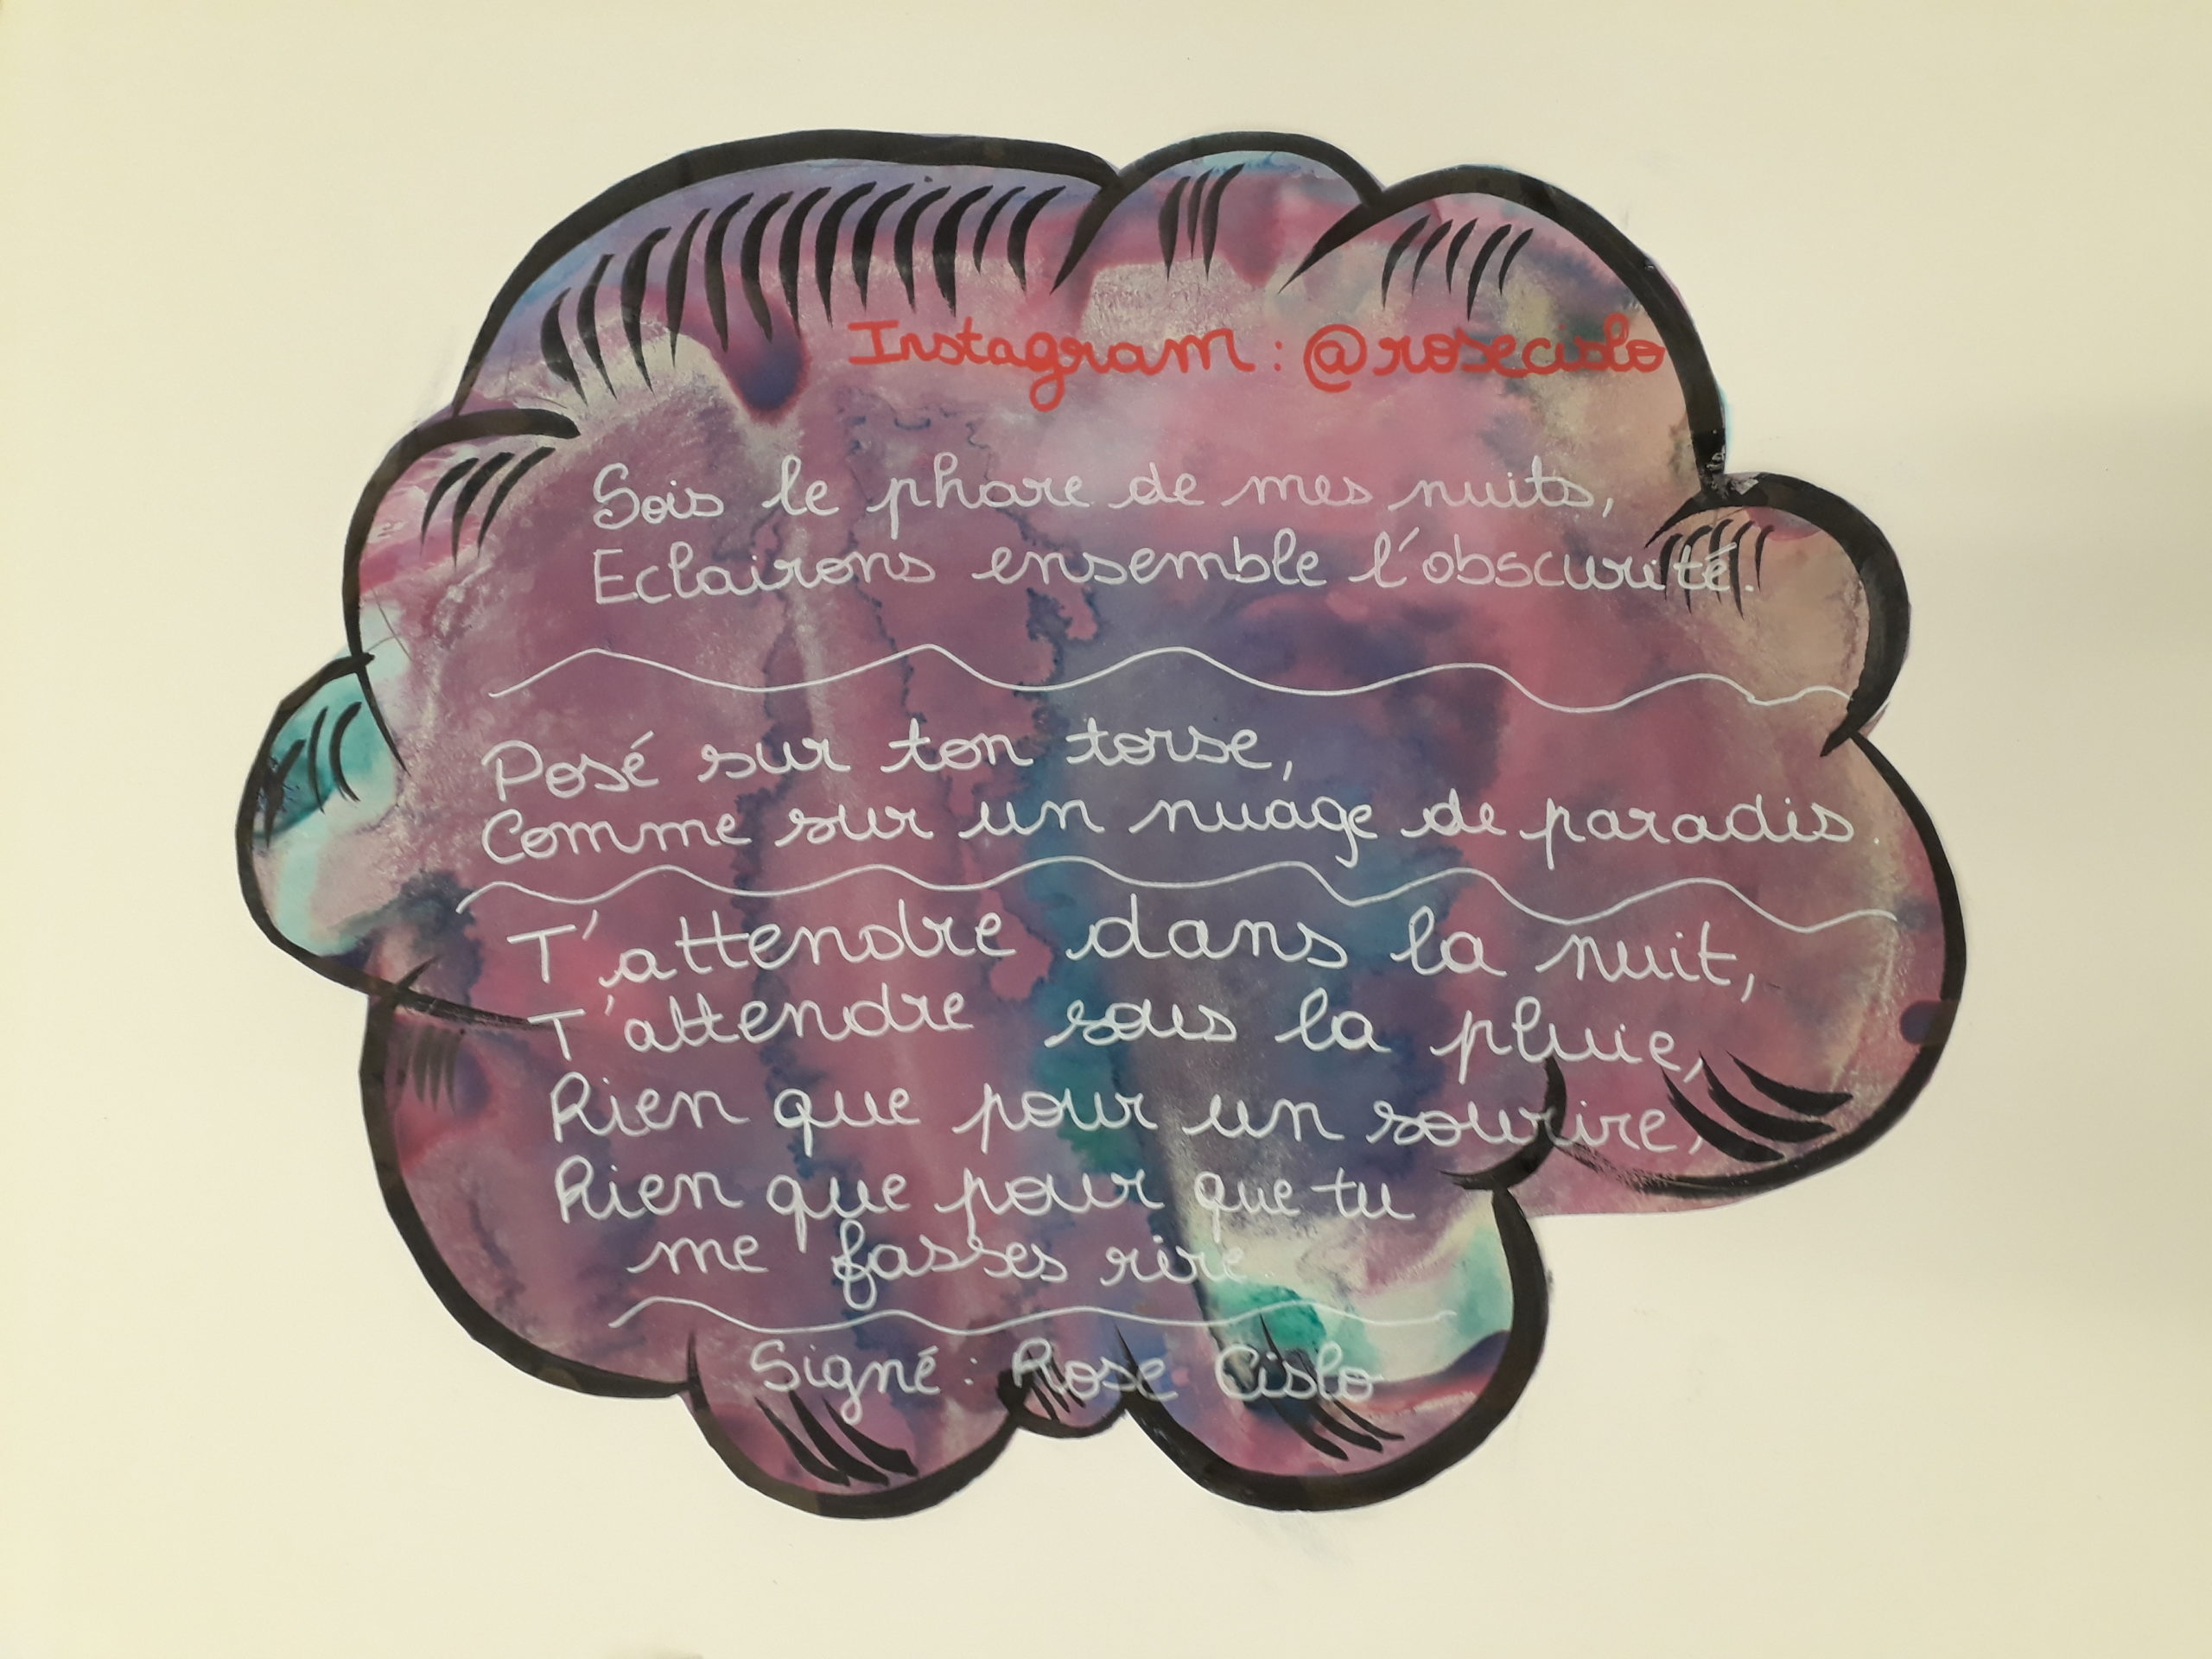 Instagram : @rosecislo
Sois le phare de mes nuits,
Eclairons ensemble l'obscurité.
Posé sur ton torse,
Comme sur un nuage de paradis.
T'attendre dans la nuit,
T'attendre sous la pluie,
Rien que pour un sourire,
Rien que pour que tu
me fasses rire.
Signé : Rose Cislo